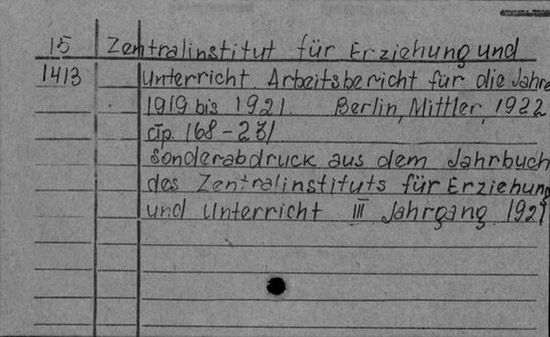 15 Zentralinstitut für Erziehung und
1413 Unterricht Arbeitsbericht für die Jahre
1919 bis 1921. Berlin, Mittler, 1922
стр. 168-231
Sonderabdruck aus dem Jahrbuch
des Zentralinstituts für Erziehung
und Unterricht III Jahrgang. 1921